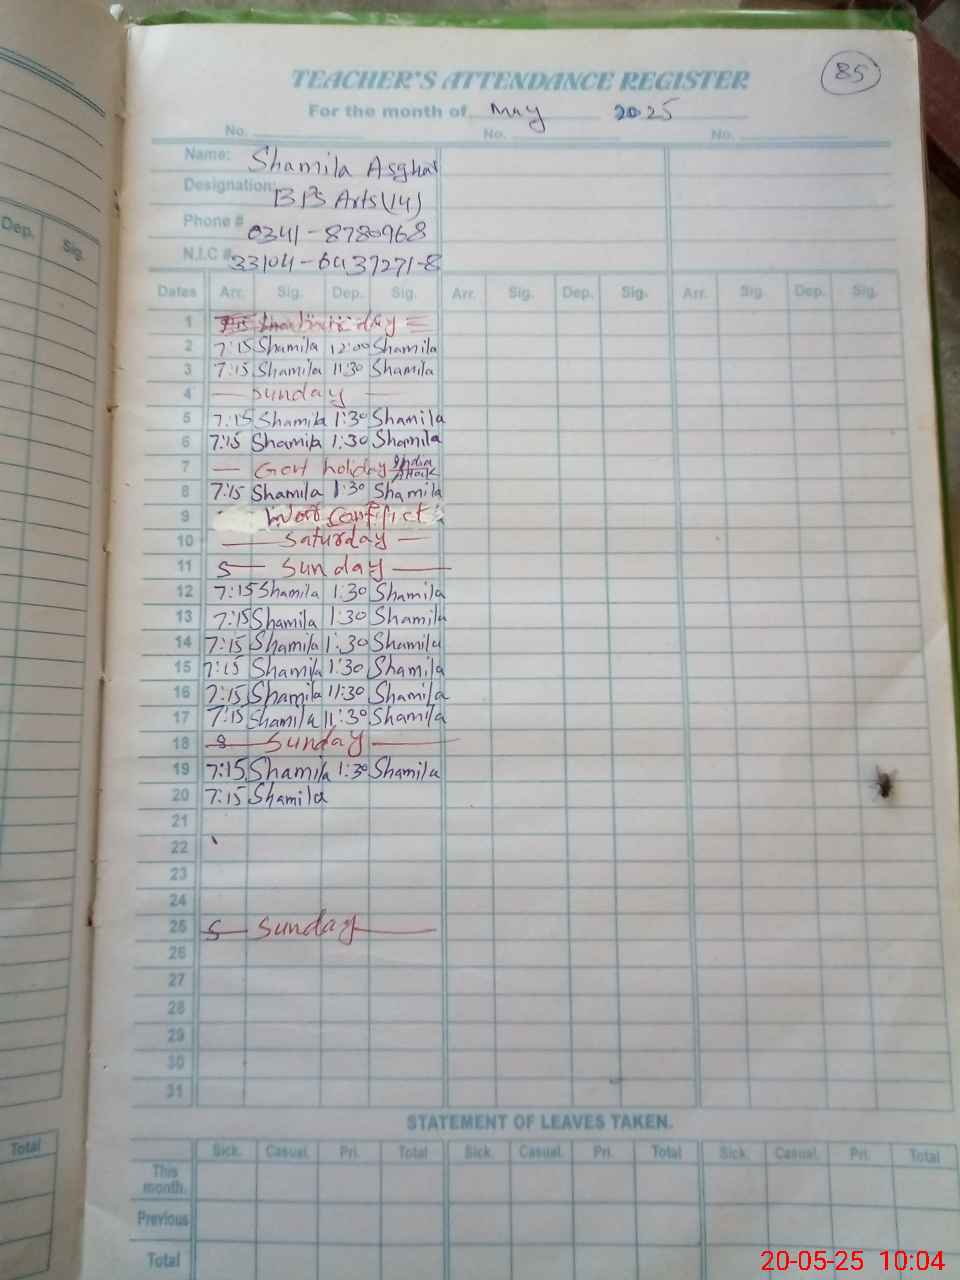 TEACHER'S ATTENDANCE REGISTER
85
For the month of May 2025
No. No. No.
Name: Shamila Asghar
Designation: BPS Arts (14)
Phone # 0341-8780968
N.I.C # 33104-6437271-8
Dep. Sig.
Dates Arr. Sig. Dep. Sig. Arr. Sig. Dep. Sig. Arr. Sig. Dep. Sig.
1 day
2 7:15 Shamila 12:00 Shamila
3 7:15 Shamila 11:30 Shamila
4 Sunday
5 7:15 Shamila 1:30 Shamila
6 7:15 Shamila 1:30 Shamila
7 Govt holiday India Attack
8 7:15 Shamila 1:30 Shamila
9 Conflict
10 Saturday
11 S Sunday
12 7:15 Shamila 1:30 Shamila
13 7:15 Shamila 1:30 Shamila
14 7:15 Shamila 1:30 Shamila
15 7:15 Shamila 1:30 Shamila
16 7:15 Shamila 11:30 Shamila
17 7:15 Shamila 11:30 Shamila
18 S Sunday
19 7:15 Shamila 1:30 Shamila
20 7:15 Shamila
21
22
23
24
25 S Sunday
26
27
28
29
30
31
STATEMENT OF LEAVES TAKEN.
Total
Sick. Casual. Pri. Total Sick. Casual. Pri. Total Sick. Casual. Pri. Total
This month.
Previous
Total
20-05-25 10:04